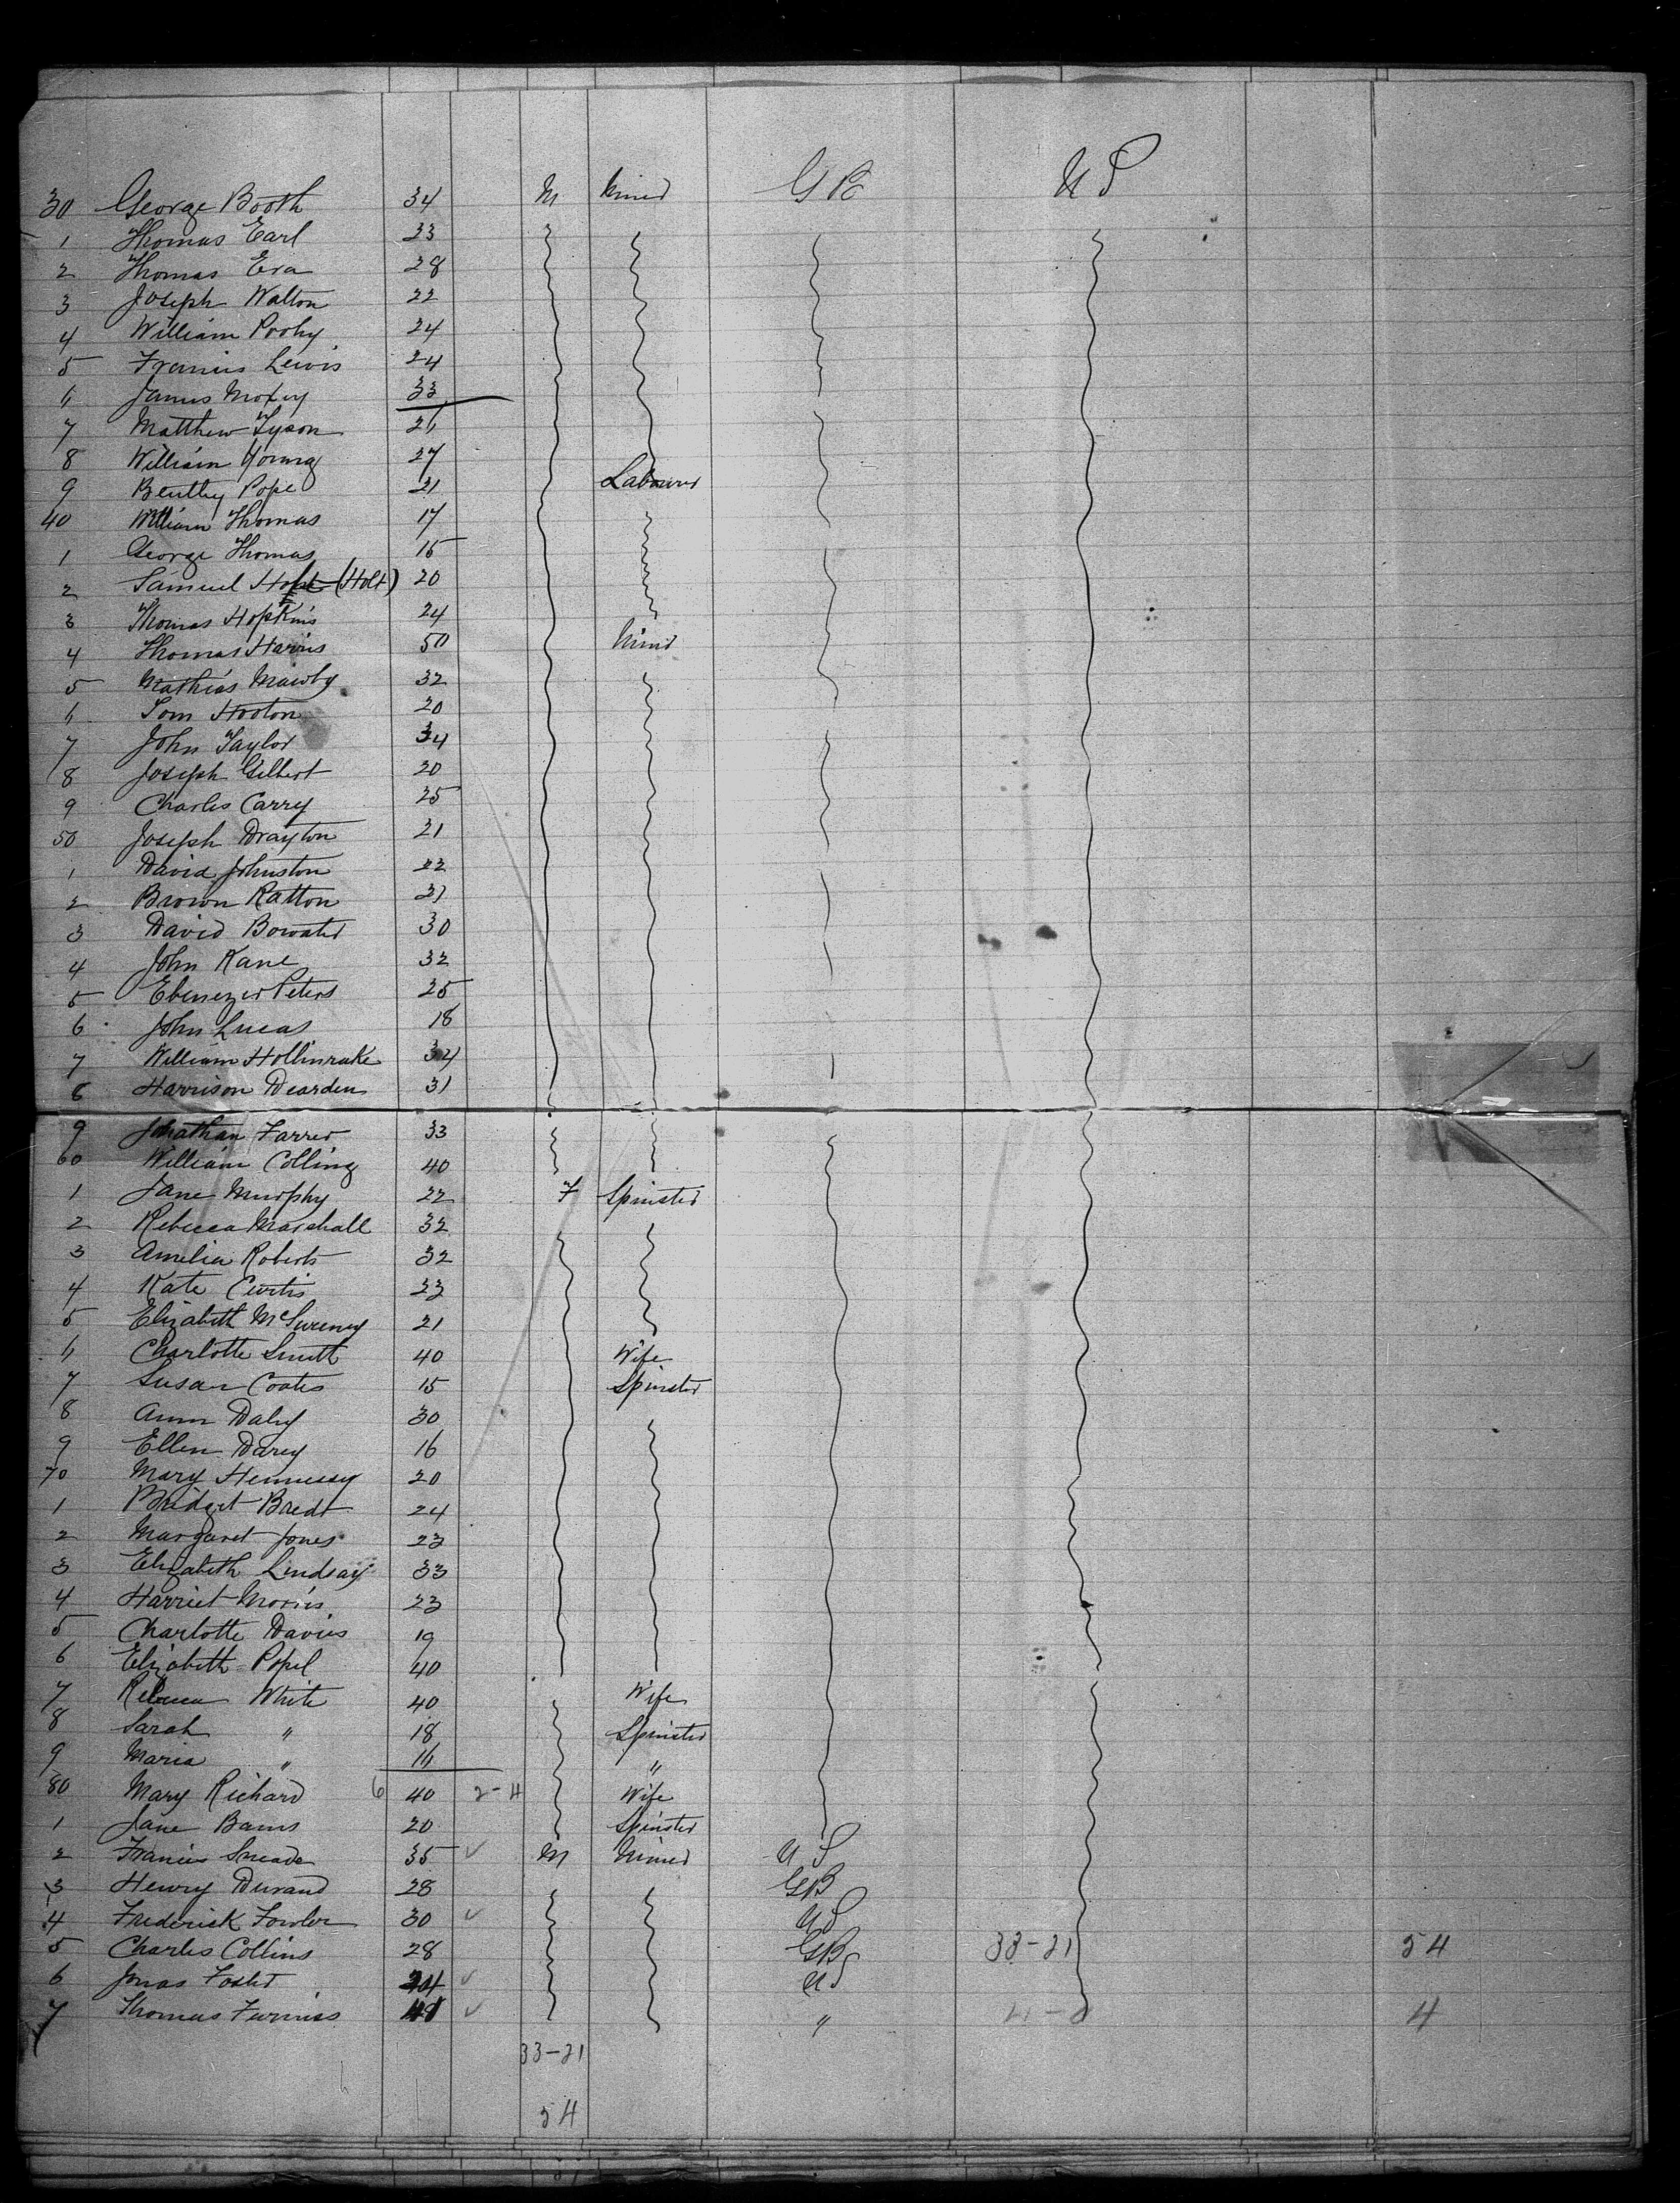 30 George Booth 34 M Miner G B U S
1 Thomas Earl 23
2 Thomas Eva 28
3 Joseph Walton 22
4 William 24
5 Francis Lewis 24
6 James Moxey 33
7 Matthew Tyson 26
8 William Young 27
9 Bentley Pope 21 Labourer
40 William Thomas 17
1 George Thomas 15
2 Samuel (Holt) 20
3 Thomas Hopkins 24
4 Thomas Harris 50 Miner
5 Mathias Mawby 32
6 Tom Hooton 20
7 John Taylor 34
8 Joseph Gilbert 20
9 Charles Carry 25
50 Joseph Drayton 21
1 David Johnston 22
2 Brown Ratton 21
3 David Bowater 30
4 John Kane 32
5 Ebenezer Peters 25
6 John Lucas 18
7 William Hollinrake 34
8 Harrison Dearden 31
9 Jonathan Farrer 33
60 William Colling 40
1 Jane Murphy 22 F Spinster
2 Rebecca Marshall 32
3 Amelia Roberts 32
4 Kate Curtis 23
5 Elizabeth McSweeney 21
6 Charlotte Smith 40 Wife
7 Susan Coates 15 Spinster
8 Ann Daly 30
9 Ellen Darcy 16
70 Mary Hennessy 20
1 Bridget 24
2 Margaret Jones 23
3 Elizabeth Lindsay 33
4 Harriet Morris 23
5 Charlotte Davies 19
6 Elizabeth Popel 40
7 Rebecca White 40 Wife
8 Sarah " 18 Spinster
9 Maria " 16 "
80 Mary Richard 6 40 2-4 Wife
1 Jane Barns 20 Spinster
2 Francis Sneade 35 ✓ M Miner U S
3 Henry Durand 28 GB
4 Frederick Fowler 30 ✓ U S
5 Charles Collins 28 GB 33-21 54
6 Jonas Foster 24 ✓ U S
7 Thomas Furniss 48 ✓ " 4-0 4
33-21
54